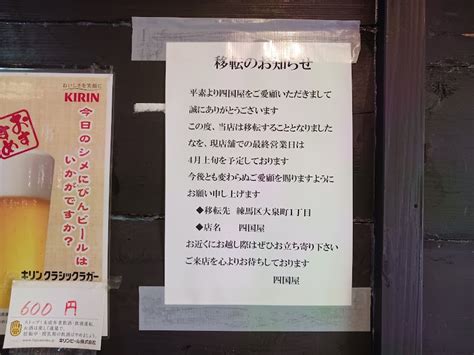 移転のお知らせ
平素より四国屋をご愛顧いただきまして
誠にありがとうございます
この度、当店は移転することとなりました
なを、現店舗での最終営業日は
4月上旬を予定しております
今後とも変わらぬご愛顧を賜りますように
お願い申し上げます
◆移転先 練馬区大泉町1丁目
◆店名 四国屋
お近くにお越し際はぜひお立ち寄り下さい
ご来店を心よりお待ちしております
四国屋
おいしさを笑顔に
KIRIN
おすすめ
今日のシメにびんビールは
いかがですか?
キリンクラシックラガー
600円
キリンビール株式会社